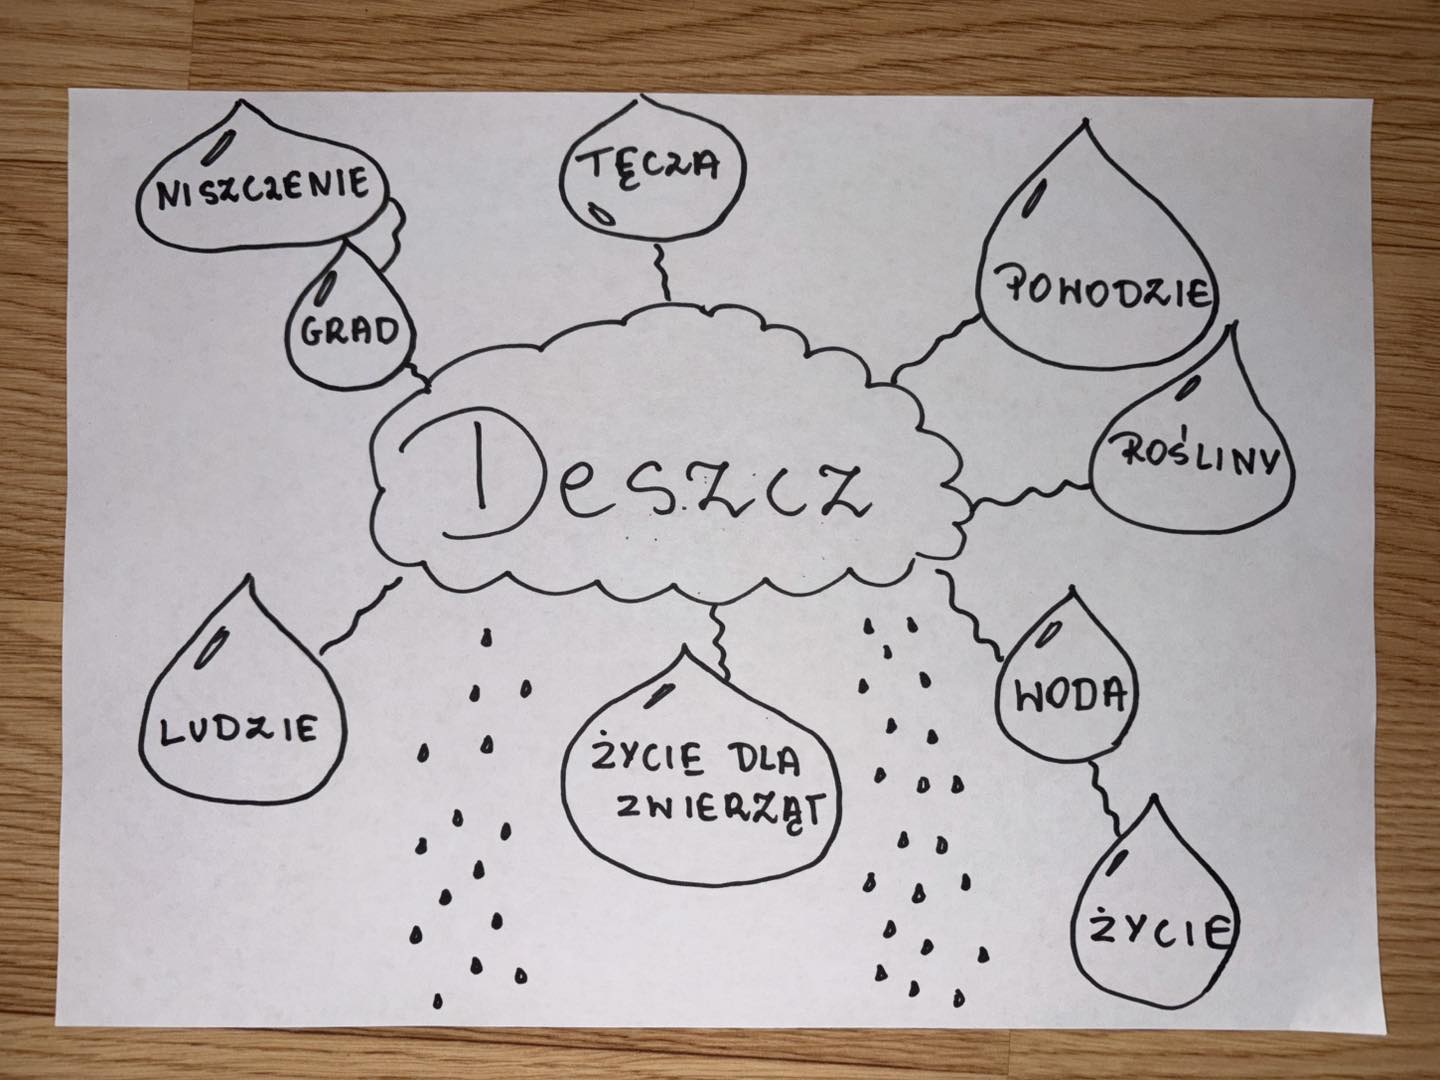 NISZCZENIE
TĘCZA
POWODZIE
GRAD
ROŚLINY
Deszcz
LUDZIE
WODA
ŻYCIE DLA
ZWIERZĄT
ŻYCIE